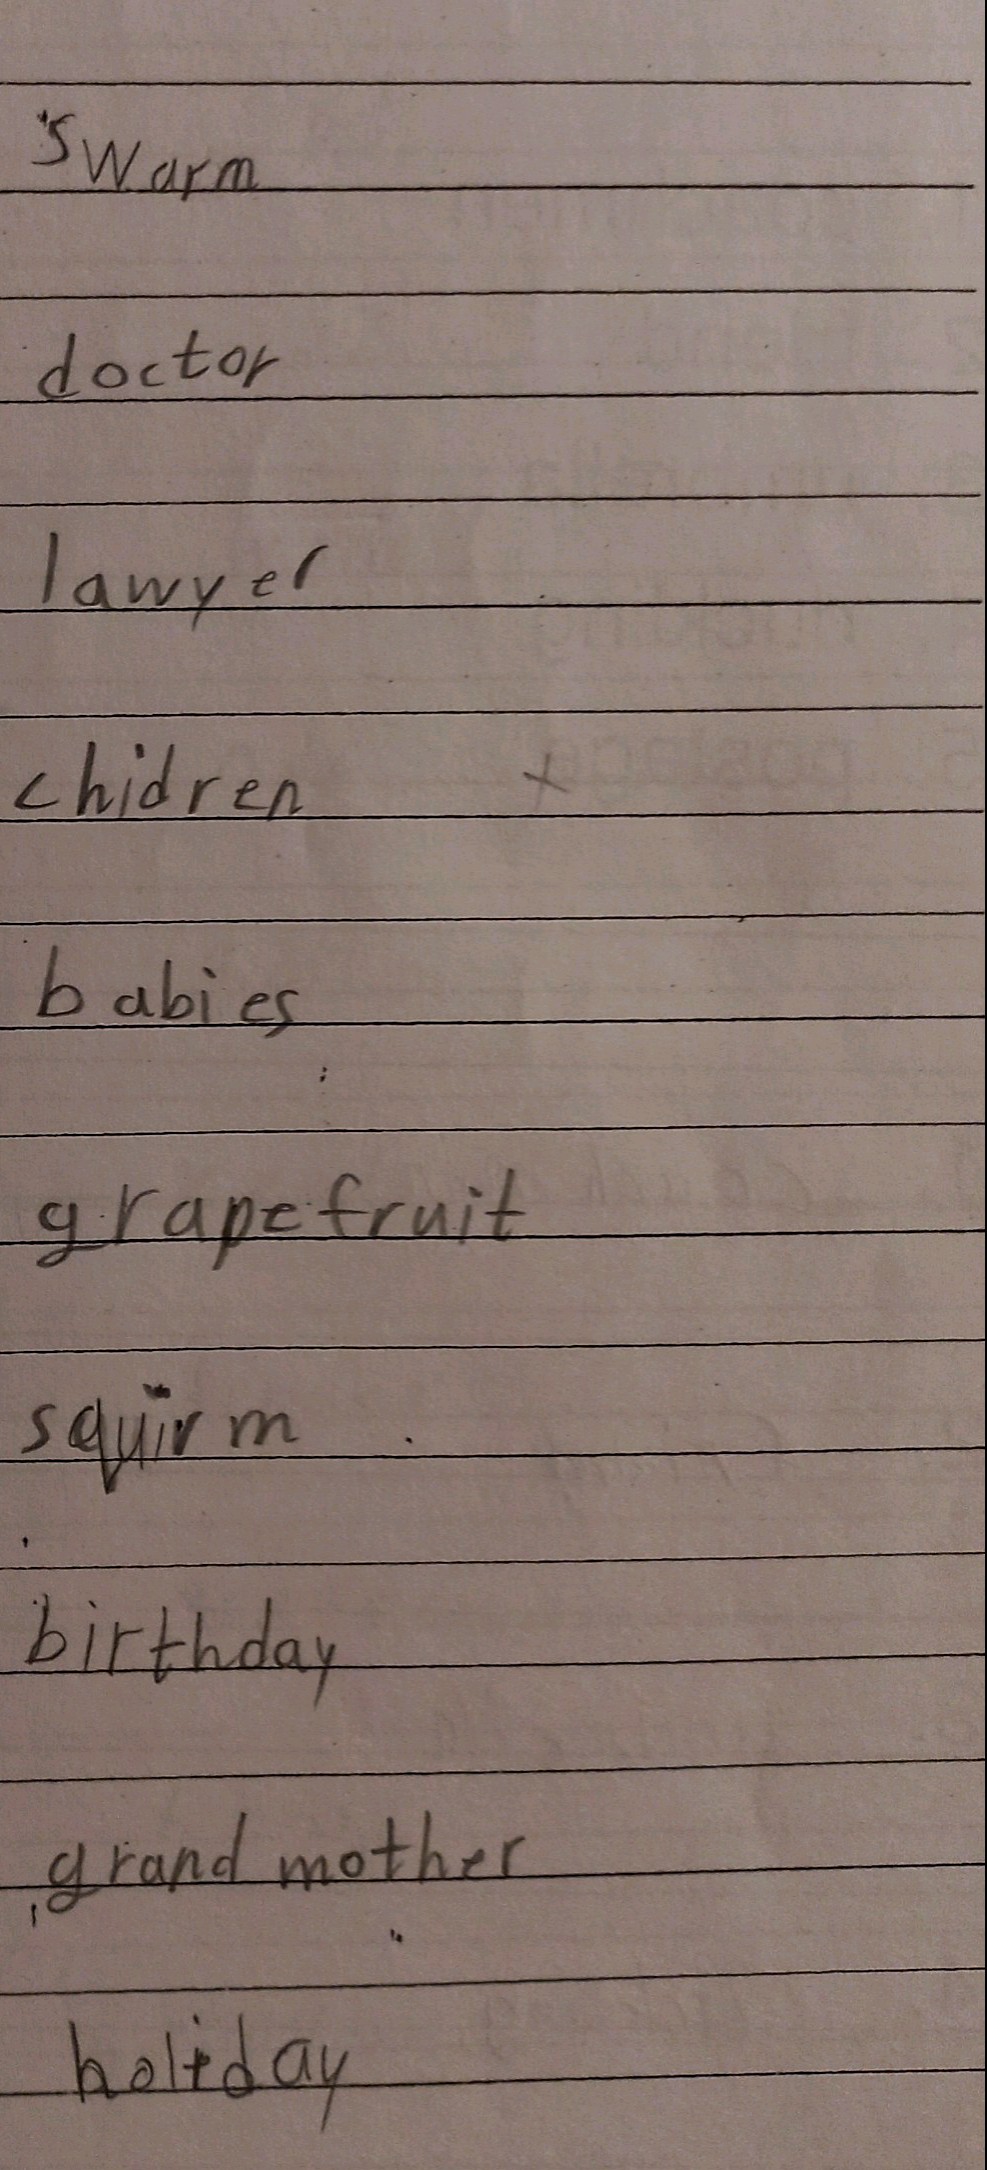 swarm
doctor
lawyer
chidren x
babies
grapefruit
squirm
birthday
grand mother
holiday